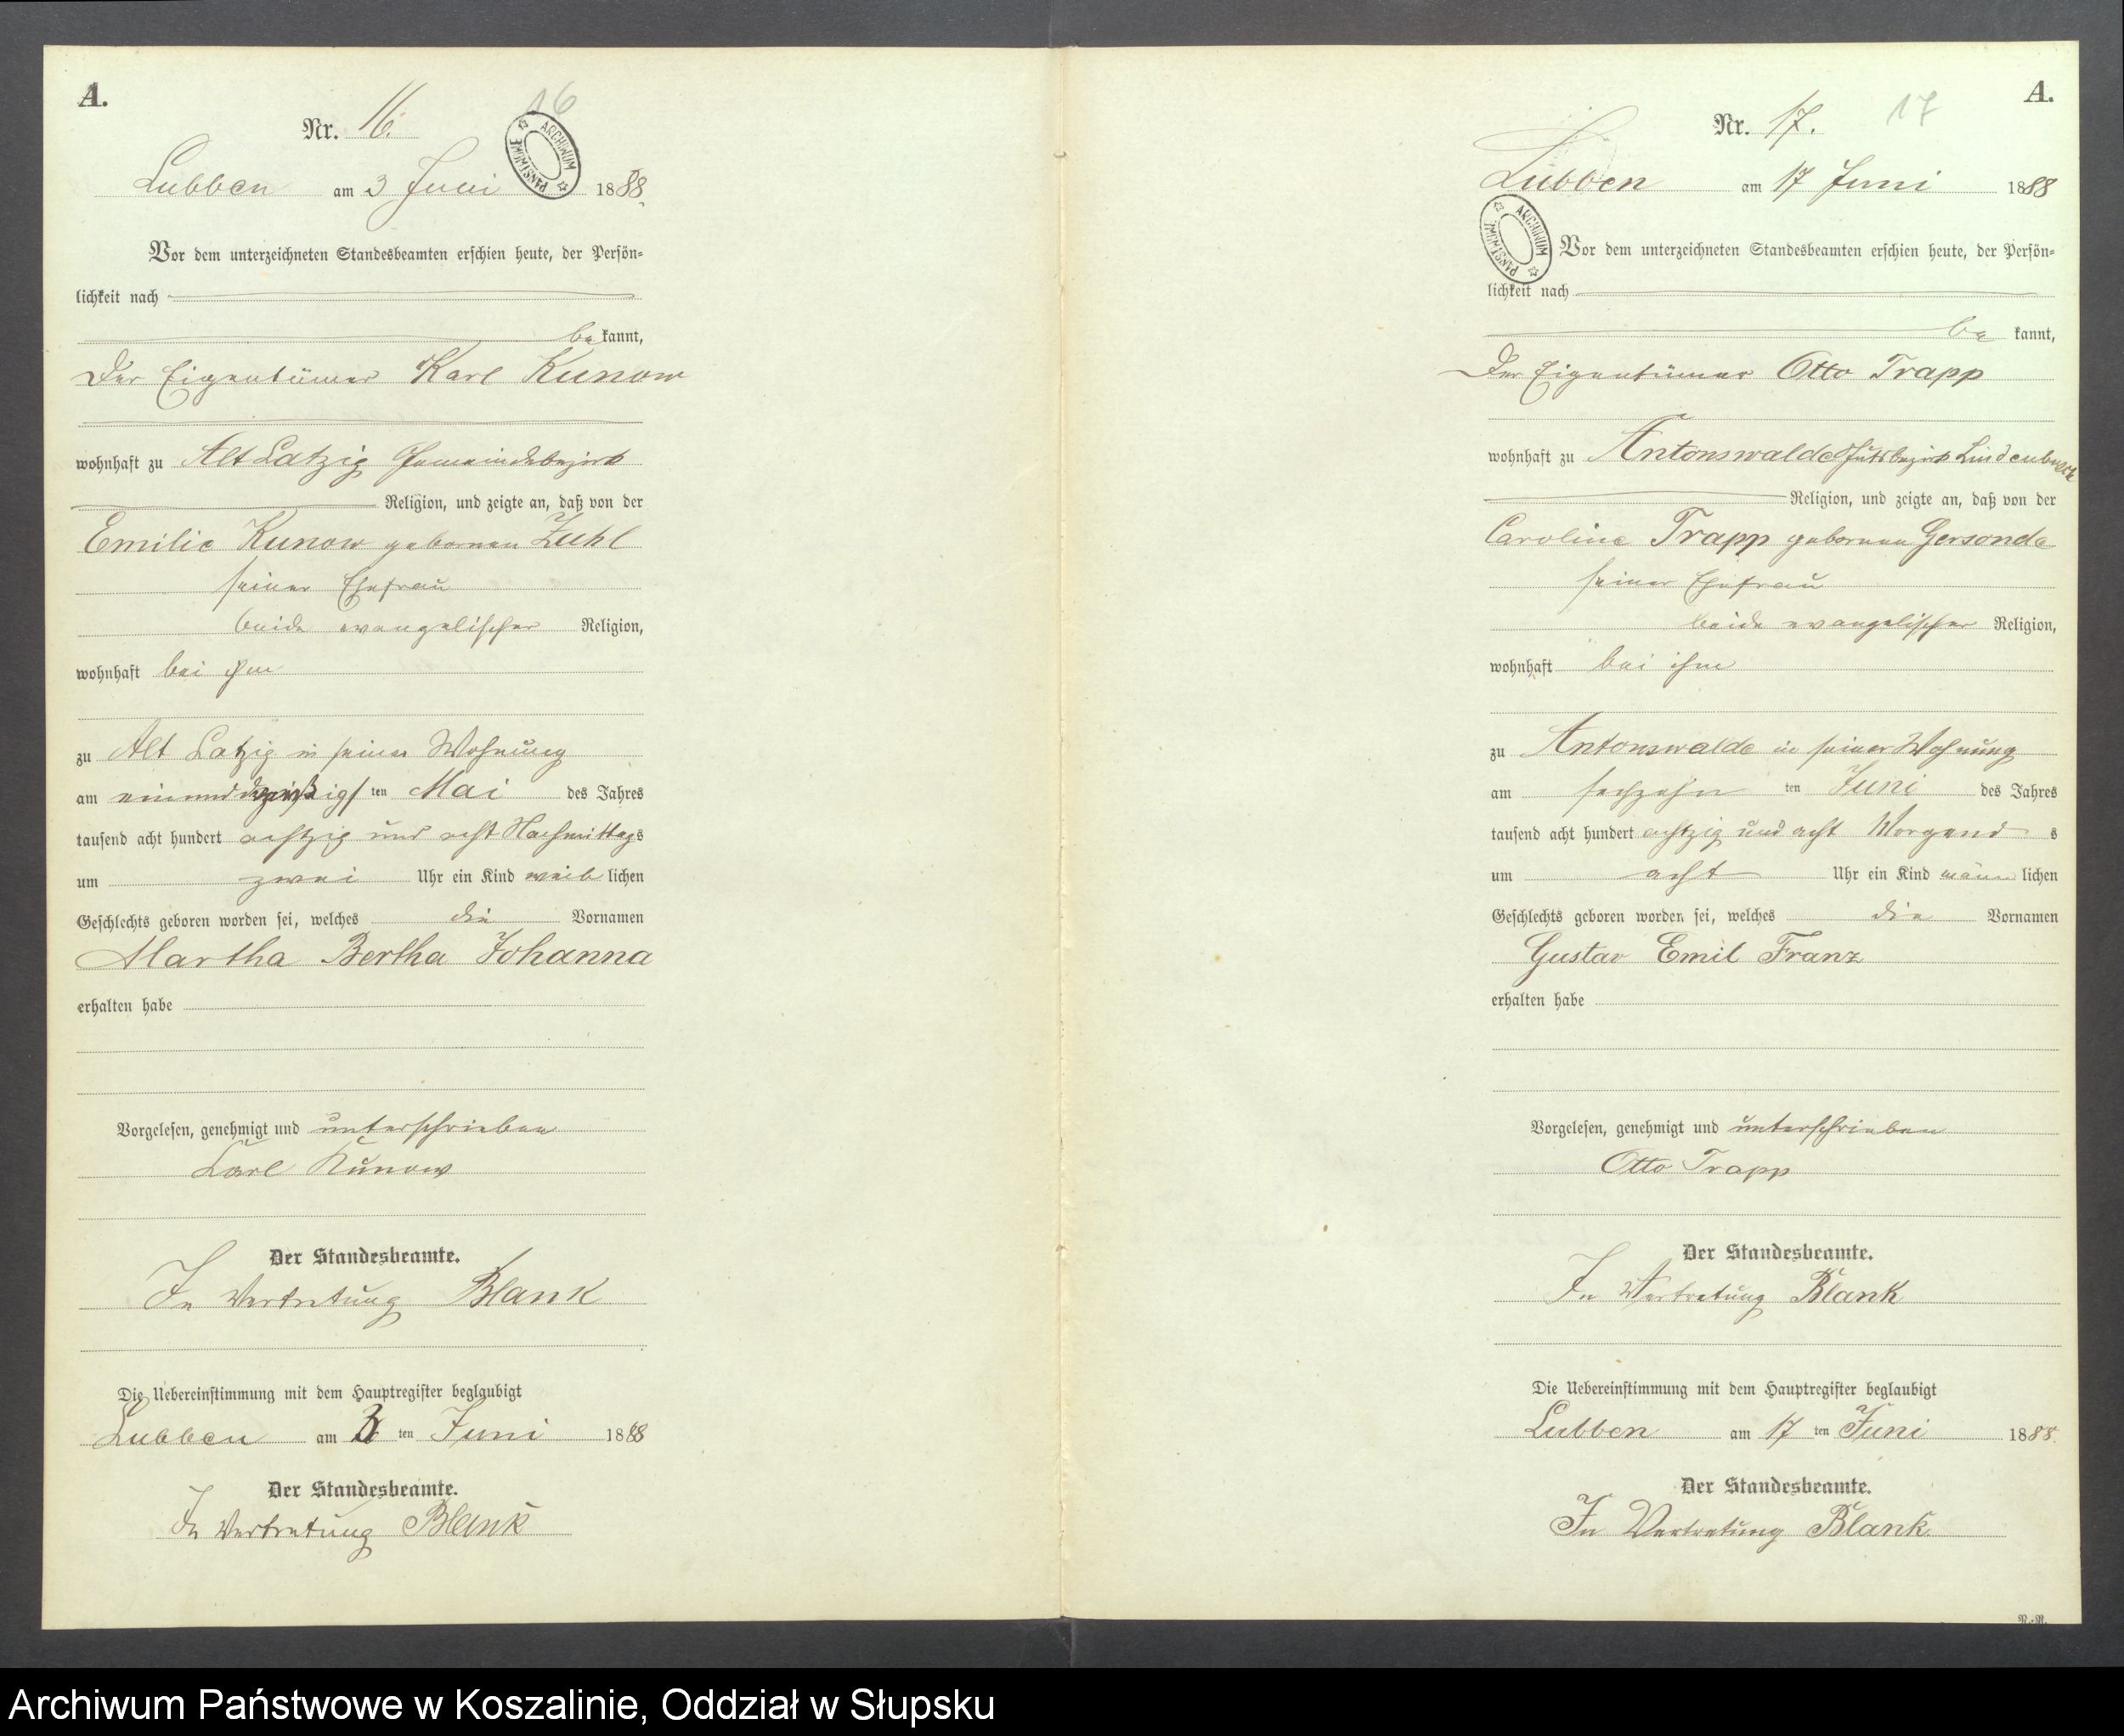 A.
Nr. 16.
16
ARCHIWUM PAŃSTWOWE
Lubben am 3 Juni 1888.
Vor dem unterzeichneten Standesbeamten erschien heute, der Persön=
lichkeit nach
be kannt,
Der Eigentümer Karl Kunow
wohnhaft zu Alt Latzig Gemeindebezirk
Religion, und zeigte an, daß von der
Emilie Kunow gebornen Zuhl
seiner Ehefrau
beide evangelischer Religion,
wohnhaft bei ihm
zu Alt Latzig in seiner Wohnung
am einunddreißigs ten Mai des Jahres
tausend acht hundert achtzig und acht Nachmittags
um zwei Uhr ein Kind weib lichen
Geschlechts geboren worden sei, welches die Vornamen
Martha Bertha Johanna
erhalten habe
Vorgelesen, genehmigt und unterschrieben
Karl Kunow
Der Standesbeamte.
In Vertretung Blank
Die Uebereinstimmung mit dem Hauptregister beglaubigt
Lubben am 3 ten Juni 1888
Der Standesbeamte.
In Vertretung Blank
A.
Nr. 17.
17
Lubben am 17 Juni 1888
ARCHIWUM PAŃSTWOWE
Vor dem unterzeichneten Standesbeamten erschien heute, der Persön=
lichkeit nach
be kannt,
Der Eigentümer Otto Trapp
wohnhaft zu Antonswalde Gutsbezirk Lindenbusch
Religion, und zeigte an, daß von der
Caroline Trapp gebornen Gersonde
seiner Ehefrau
beide evangelischer Religion,
wohnhaft bei ihm
zu Antonswalde in seiner Wohnung
am sechzehn ten Juni des Jahres
tausend acht hundert achtzig und acht Morgens s
um acht Uhr ein Kind männ lichen
Geschlechts geboren worden sei, welches die Vornamen
Gustav Emil Franz
erhalten habe
Vorgelesen, genehmigt und unterschrieben
Otto Trapp
Der Standesbeamte.
In Vertretung Blank
Die Uebereinstimmung mit dem Hauptregister beglaubigt
Lubben am 17 ten Juni 1888.
Der Standesbeamte.
In Vertretung Blank.
Archiwum Państwowe w Koszalinie, Oddział w Słupsku